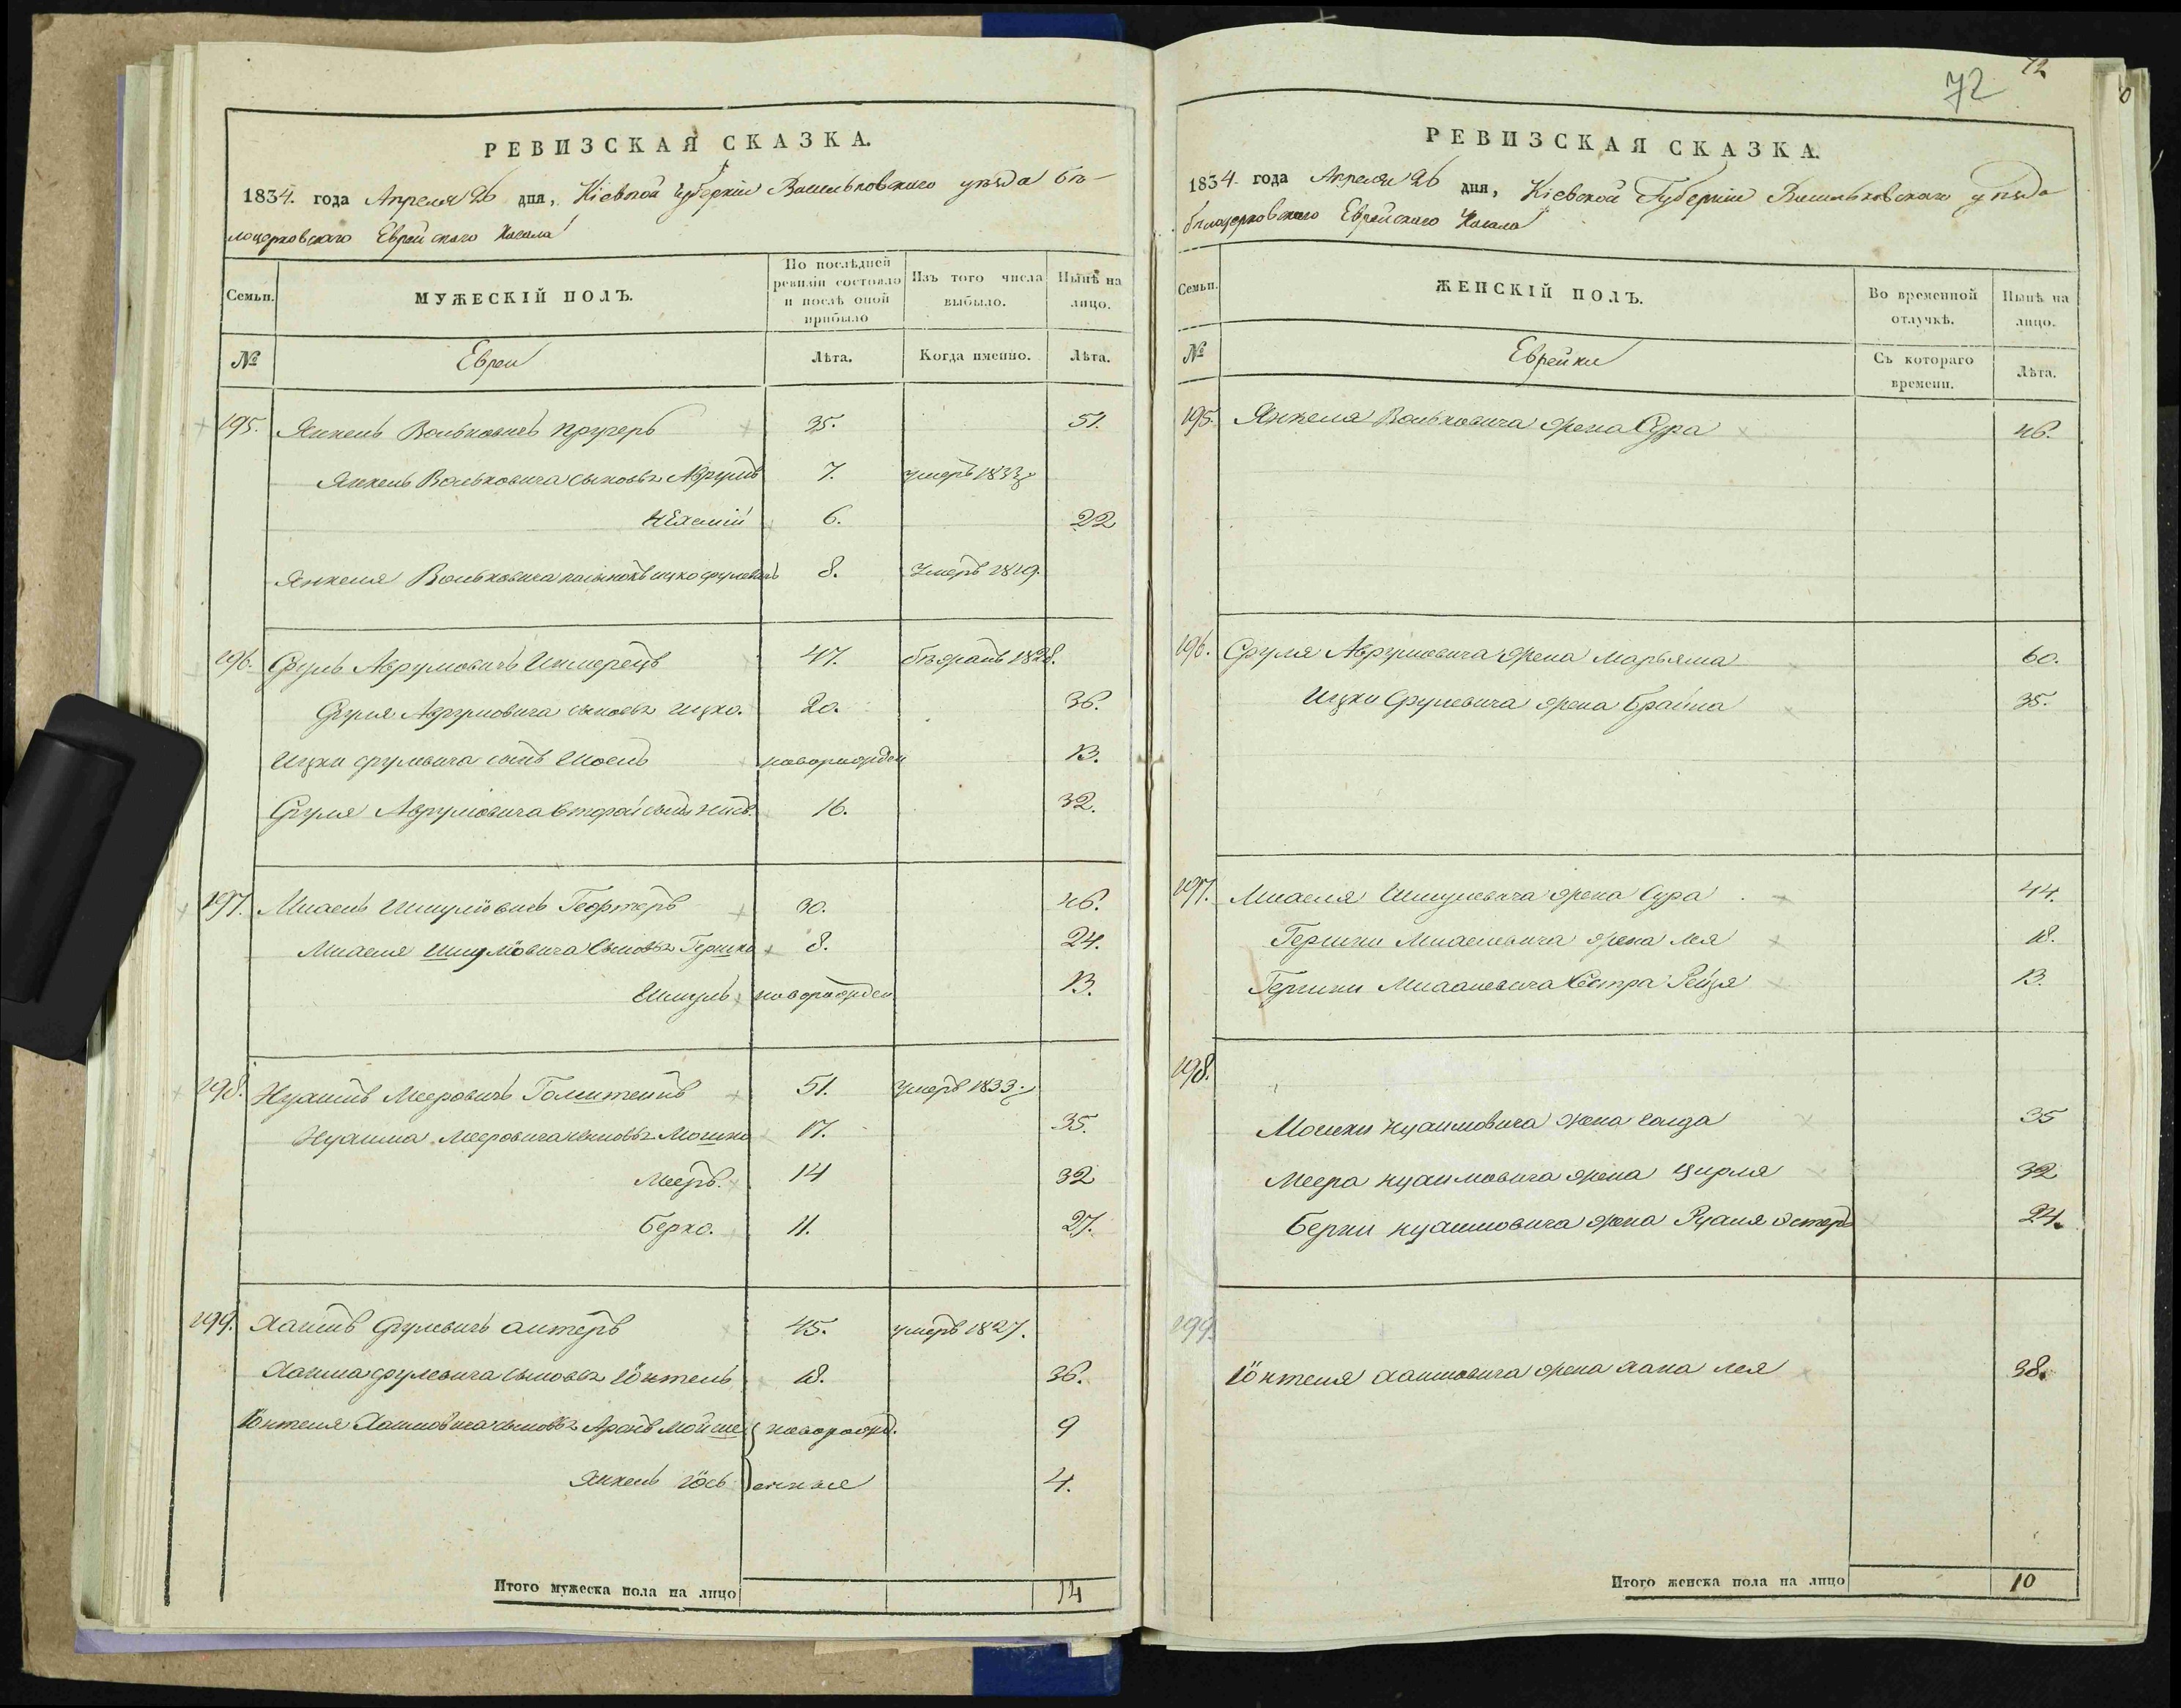 РЕВИЗСКАЯ СКАЗКА.
1834. года Апреля 26 дня, Кіевской Губерніи Васильковскаго уѣзда Бѣ-
лоцерковскаго Еврейскаго Кагала
Семьи.
МУЖЕСКІЙ ПОЛЪ.
По послѣдней ревизіи состояло и послѣ оной прибыло
Изъ того числа выбыло.
Нынѣ на лицо.
№
Евреи
Лѣта.
Когда именно.
Лѣта.
195. Янкель Вольковичъ 35. 51.
Янкель Вольковича сыновья Аврумъ 7. умеръ 1833
6. 22
Янкеля Вольковича 8. Умеръ 1819.
196. Сруль Аврумовичъ 47. 1828.
Сруля Аврумовича сыновья Ицко. 20. 36.
Ицки Срулевича сынъ новорожден 13.
Сруля Аврумовича второй сынъ 16. 32.
197. Шмулевичъ 30. 46.
Шмулёвича сыновья Гершко 8. 24.
Шмуль новорожден 13.
198. Нухимъ Мееровичъ 51. Умеръ 1833.
Нухима Мееровича сыновья Мошко 17. 35.
Мееръ. 14 32
Берко. 11. 27.
199. Хаимъ Срулевичъ 45. умеръ 1827.
Хаима Срулевича сыновья Іонтель 18. 36.
Іонтеля Хаимовича сыновья Аронъ Мойше новорожд. 9
Янкель Іось енные 4.
Итого мужеска пола на лицо 14
72
72
РЕВИЗСКАЯ СКАЗКА.
1834. года Апреля 26 дня, Кіевской Губерніи Васильковскаго уѣзда
бѣлоцерковскаго Еврейскаго Кагала
Семьи.
ЖЕНСКІЙ ПОЛЪ.
Во временной отлучкѣ.
Нынѣ на лицо.
№
Еврейки
Съ котораго времени.
Лѣта.
195. Янкеля Вольковича жена Сура 46.
196. Сруля Аврумовича жена Марьяма 60.
Ицки Срулевича жена Брайна 35.
197. Шмулевича жена Сура 44.
Гершки жена Лея 18.
Гершки сестра Рейзя 13.
198.
Мошки Нухимовича жена 35
Меера Нухимовича жена Цирля 32
Берки Нухимовича жена 24.
199.
Іонтеля Хаимовича жена Хана Лея 38.
Итого женска пола на лицо 10